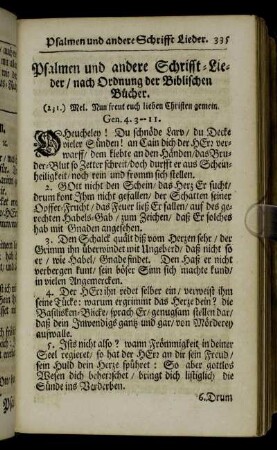 Psalmen und andere Schrifft Lieder. 335
Psalmen und andere Schrifft-Lie-
der / nach Ordnung der Biblischen
Bücher.
(231.) Mel. Nun freut euch lieben Christen gemein.
Gen. 4. 3--11.
O Heucheley! Du schnöde Larv / du Decke
vieler Sünden! an Cain dich der HErr ver-
warff / dem klebte an den Händen / das Bru-
der-Blut so Zetter schreyt doch durfft er aus Schein-
heiligkeit / noch rein und fromm sich stellen.
2. GOtt nicht den Schein / das Hertz Er sucht /
drum kont Ihm nicht gefallen / der Schatten seiner
Opffer-Frucht / das Feuer ließ Er fallen / auf des ge-
rechten Habels Gab / zum Zeichen / daß Er solches
hab mit Gnaden angesehen.
3. Den Schalck quält diß vom Hertzen sehr / der
Grimm ihn überwindet mit Ungeberd / daß nicht so
er / wie Habel / Gnade findet. Den Haß er nicht
verbergen kunt / sein böser Sinn sich machte kund /
in vielen Angemercken.
4. Der HErr ihn redet selber ein / verweist ihm
seine Tücke: warum ergrimmt das Hertze dein? die
Basilisken-Blicke / sprach Er / genugsam stellen dar /
daß dein Inwendigs gantz und gar / von Mörderey
aufwalle.
5. Ists nicht also? wann Frömmigkeit in deiner
Seel regieret / so hat der HErr an dir sein Freud /
sein Huld dein Hertze spühret: So aber gottlos
Wesen dich beherrschet / bringt dich listiglich die
Sünde ins Verderben.
6. Drum